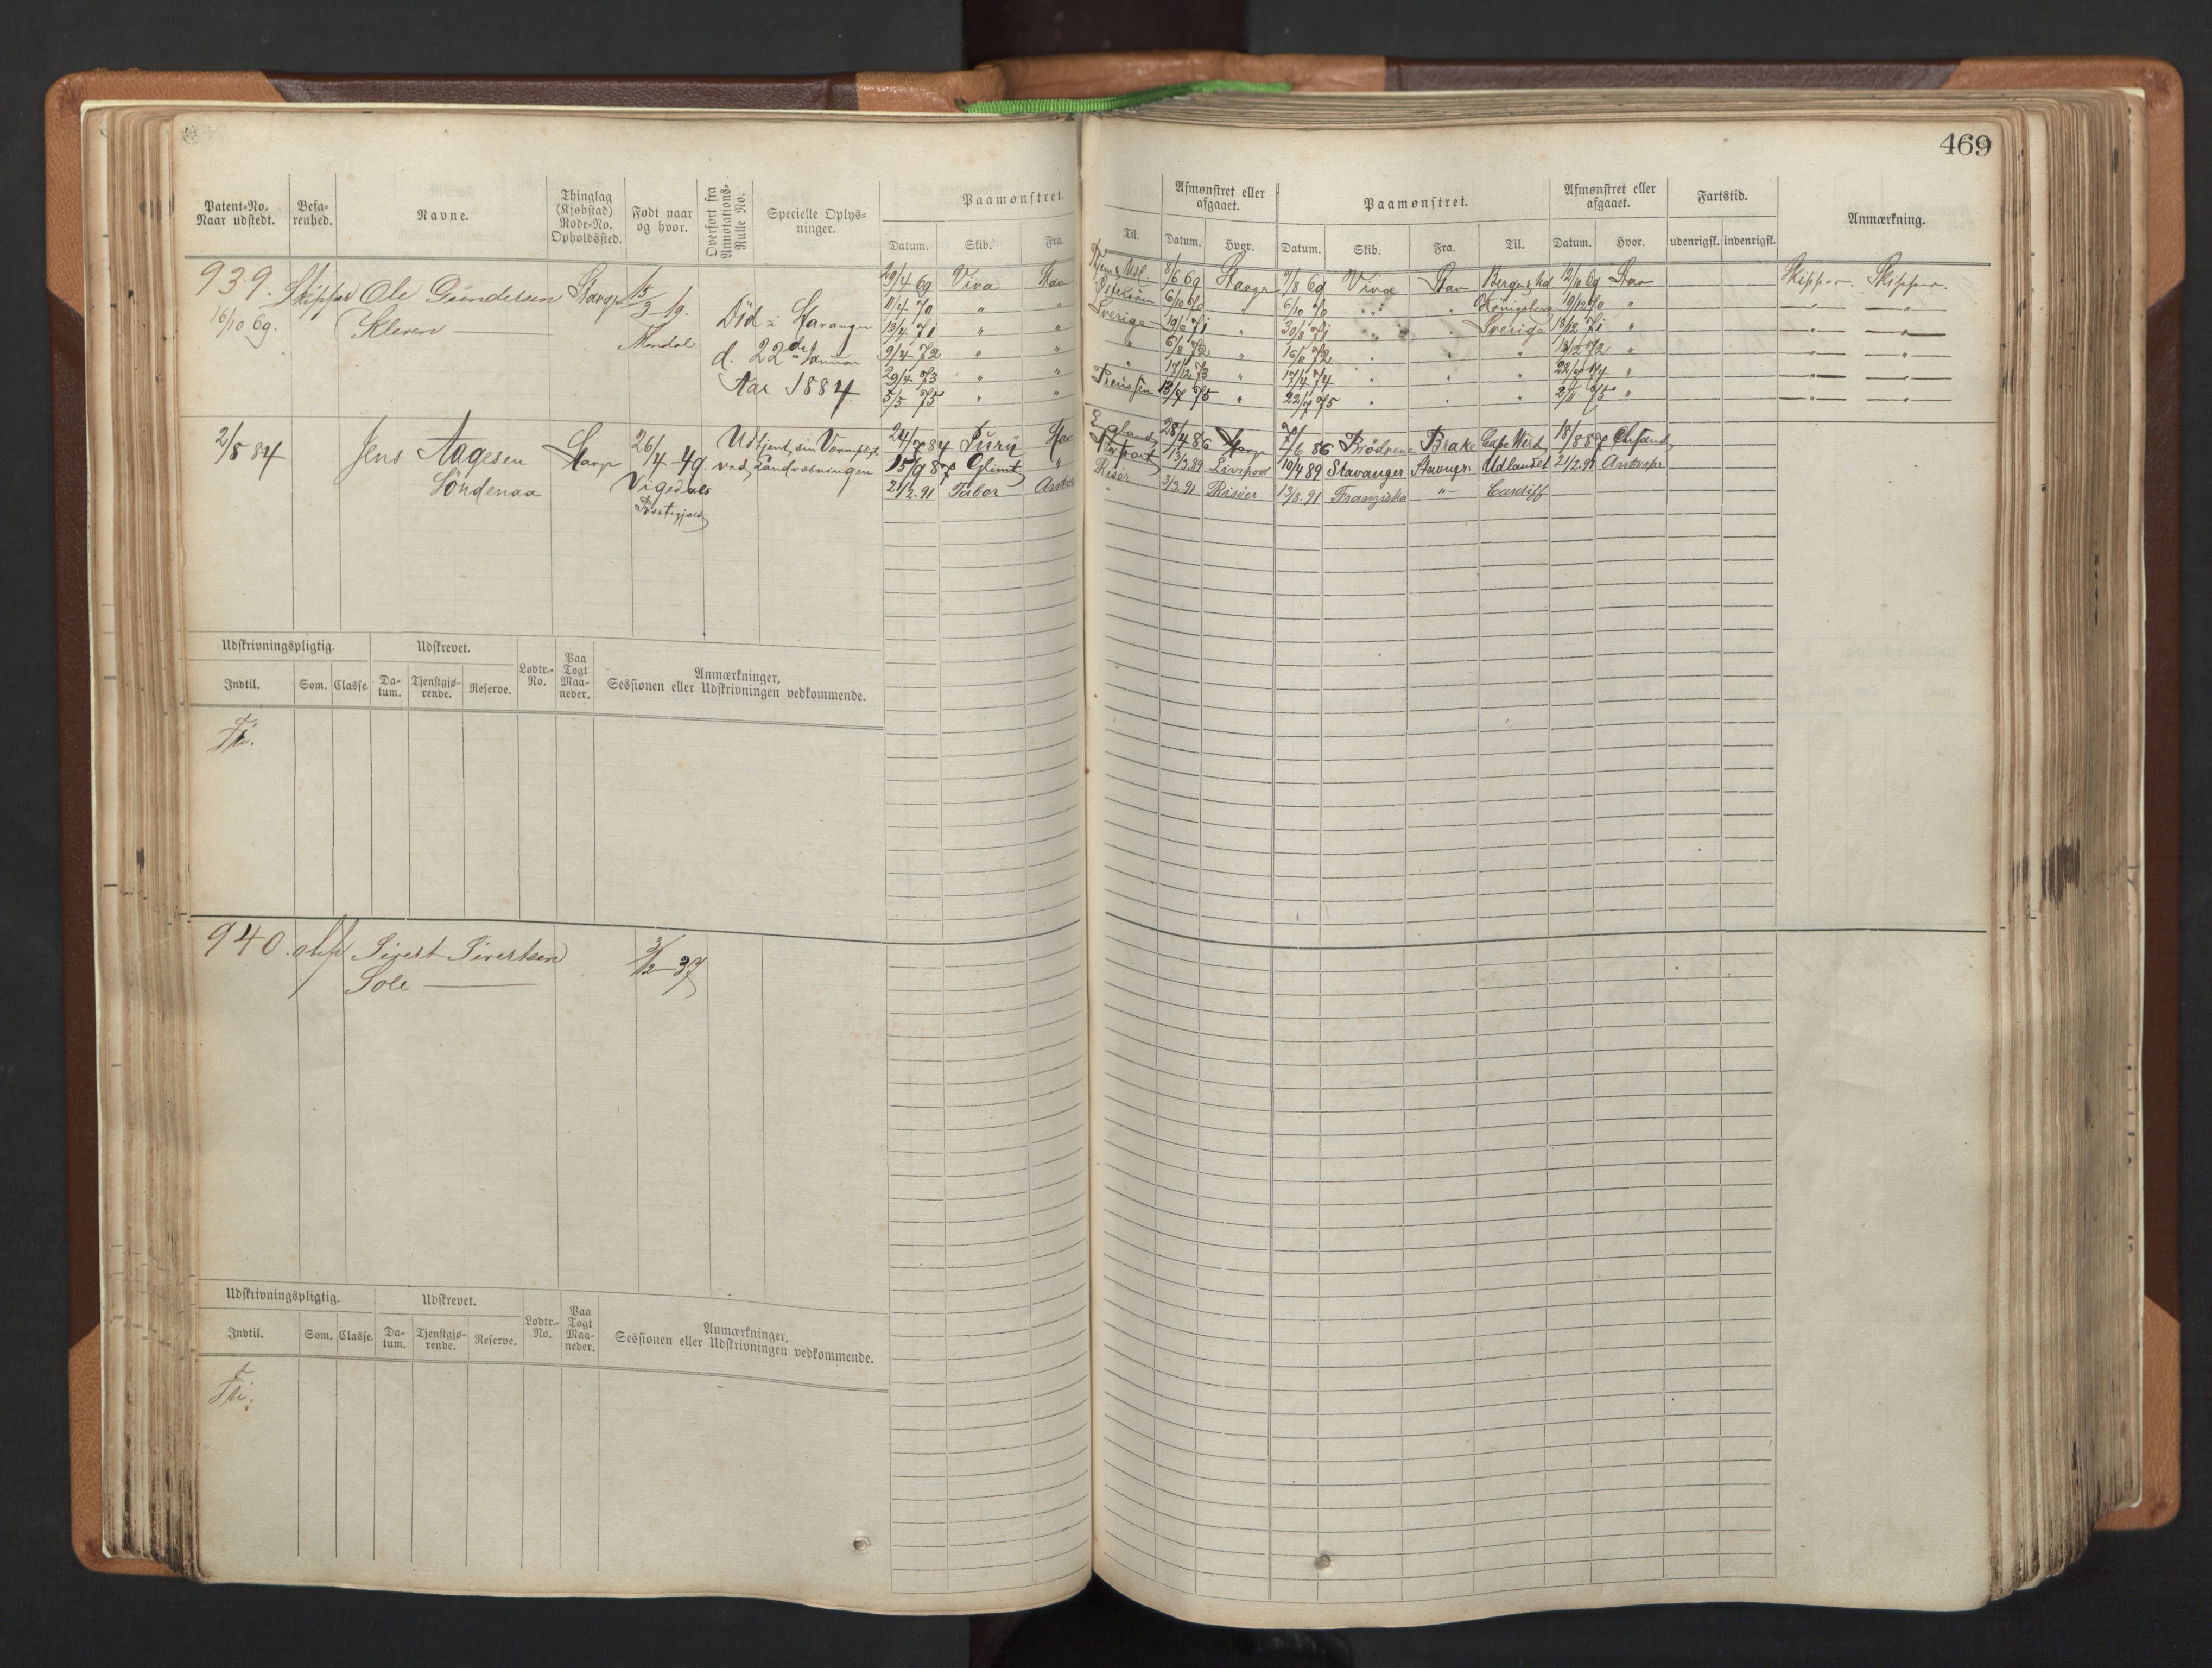 469
Patent-No. Naar udstedt.
Befa-renhed.
Navne.
Thinglag (Kjøbstad) Rode-No. Opholdssted.
Født naar og hvor.
Overført fra Annotations-Rulle No.
Specielle Oplys-ninger.
Paamønstret.
Datum. Skib. Fra. Til.
Afmønstret eller afgaaet.
Datum. Hvor.
Paamønstret.
Datum. Skib. Fra. Til.
Afmønstret eller afgaaet.
Datum. Hvor.
Fartstid.
udenrigsk. indenrigsk.
Anmærkning.
939. Skipper Ole Gundersen Stavgr 15/3-19.
16/10 69. Kleven Mandal
Död i Stavanger
d. 22de Januar
Aar 1884
29/4 69 Viva Stav 8/6 69 Stavgr 7/8 69 Viva Stav Bergen 12/10 69 Stav Skipper. Skipper.
11/4 70 " " 6/10 70 6/10 70 19/12 70 "
13/4 71 " " Sverige 19/6 71 " 30/8 71 Sverige 18/12 71 "
9/4 72 " " " 6/8 72 " 16/8 72 " 13/12 72 "
29/4 73 " " " 17/12 73 " 17/4 74 " 74 "
5/5 75 " " Preussen 13/7 75 " 22/7 75 " 2/11 75 "
2/8 84 Jens Aagesen Stavgr 26/4-49. Udtjent sin Værnepligt
Söndenaa Vigedals ved Landvæbningen
Præstegjæld
24/7 84 Puru Stav England 28/4 86 Stavgr 7/6 86 Brödrene Brake Cape Verd 18/8 87 Chrsand
15/9 87 Glimt " 13/3.89 Liverpool 10/4 89 Stavanger Stavngr Udlandet 21/2.91 Antwpn
21/2.91 Tabor Antw Risör 3/3.91 Risöer 13/8.91 Franziska "- Cardiff
Udskrivningspligtig. Udskrevet. Lodtr.-No. Paa Togt Maa-neder. Anmærkninger,
Indtil. Som. Classe. Da-tum. Tjenstgjø-rende. Reserve. Sessionen eller Udskrivningen vedkommende.
940. Sivert Sivertsen 3/12-37
Sole
Udskrivningspligtig. Udskrevet. Lodtr.-No. Paa Togt Maa-neder. Anmærkninger,
Indtil. Som. Classe. Da-tum. Tjenstgjø-rende. Reserve. Sessionen eller Udskrivningen vedkommende.